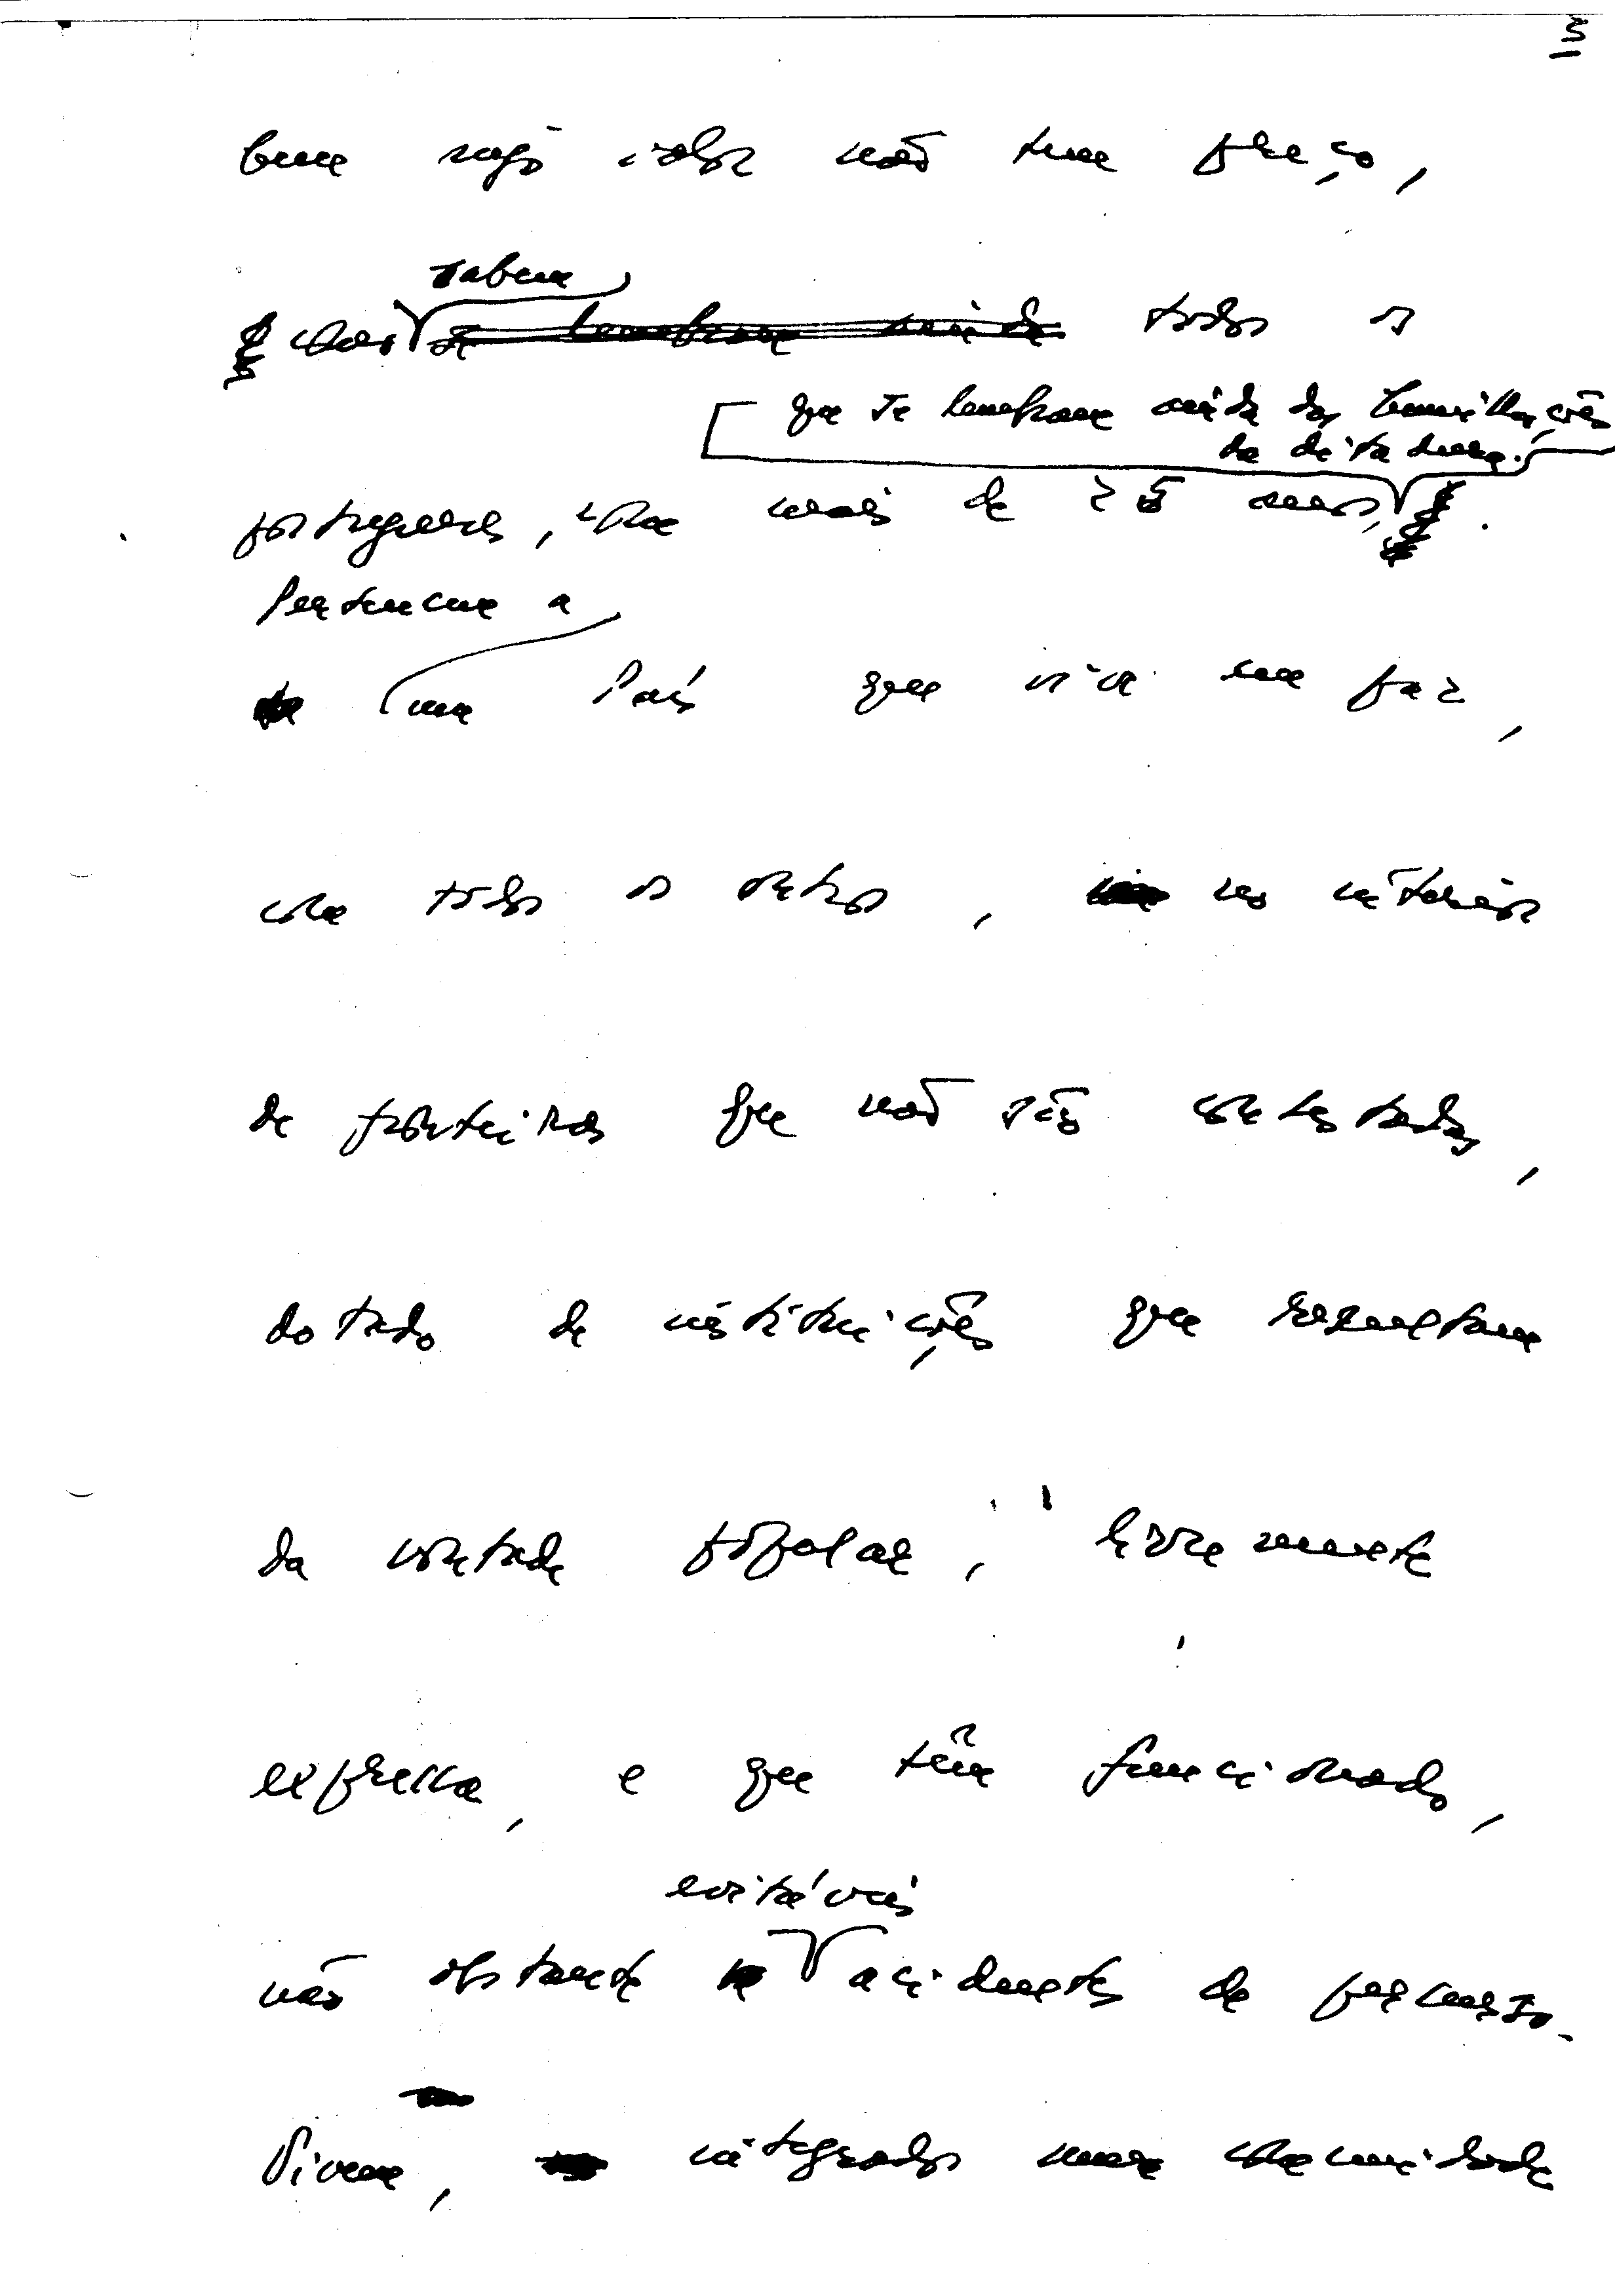 3
bem cujo valor não tem preço,
sabem
como se lembram ainda todos os
que se lembram ainda das humilhações
da ditadura.
portugueses, com mais de 25 anos,
Pertencem a
um País que vive em paz,
com todos os outros, no interior
de fronteiras que não são contestadas,
dotado de instituições que resultam
da vontade popular, livremente
expressa, e que têm funcionado,
evitáveis
não obstante acidentes de percurso.
Vivem, integrados numa comunidade